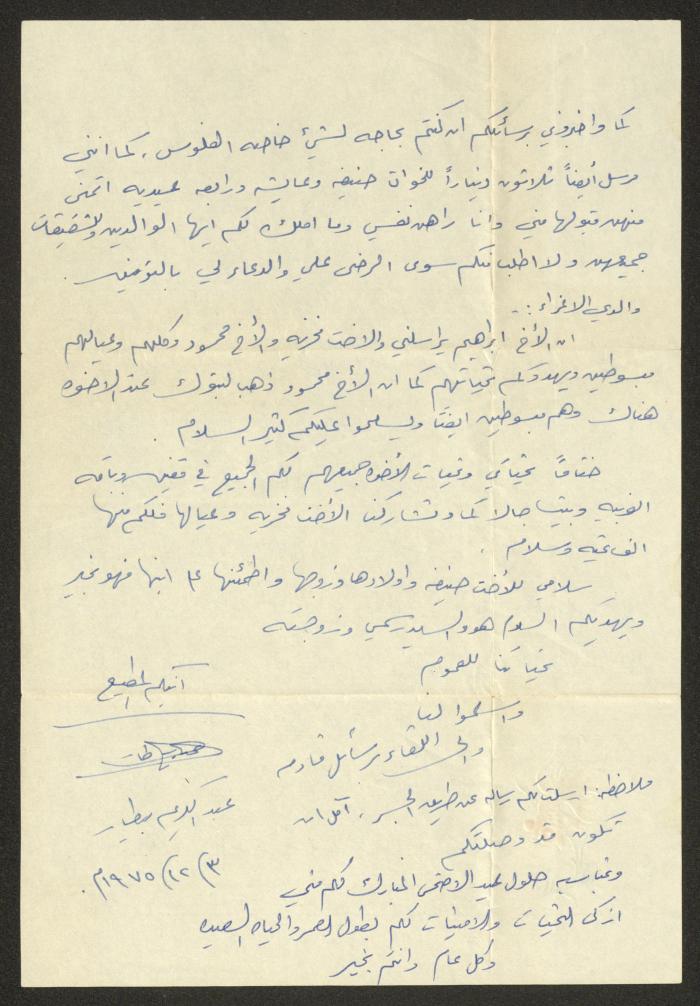 كما واخبروني برسائلكم ان كنتم بحاجه لشيء خاصه الفلوس، كما انني
مرسل أيضاً ثلاثون ديناراً للخوات حنيفه وعايشه ورابعه عيديه اتمنى
منهن قبولها مني وانا راهن نفسي وما املك لكم ايها الوالدين والشقيقات
جميعهن ولا اطلب منكم سوى الرضى علي والدعاء لي بالتوفيق.
والدي الاعزاء :-
ان الأخ ابراهيم يراسلني والاخت فخريه والأخ محمود وكلهم وعيالهم
مبسوطين ويهدوكم تحياتهم كما ان الأخ محمود ذهب لتبوك عند الاخوه
هناك وهم مبسوطين ايضاً ويسلموا عليكم كثير السلام.
ختاماً تحياتي وتحيات الأخوه جميعهم لكم الجميع في
الغربيه وبيت جالا كما وتشاركنا الأخت فخريه وعيالها فلكم منها
الف تحيه وسلام.
سلامي للأخت حنيفه واولادها وزوجها واطمئنها على ابنها فهو بخير
ويهديكم السلام هو والسيد رسمي وزوجته
تحياتنا للعموم
واسلموا لنا
ابنكم المطيع
والى اللقاء برسائل قادمه
عبد الكريم
ملاحظة: ارسلت لكم رساله عن طريق الجسر، آمل ان
تكون قد وصلتكم
٣/١٢/١٩٧٥م.
وبمناسبه حلول عيد الاضحى المبارك لكم مني
ازكى التحيات والامنيات لكم بطول العمر والحياه السعيده
وكل عام وانتم بخير